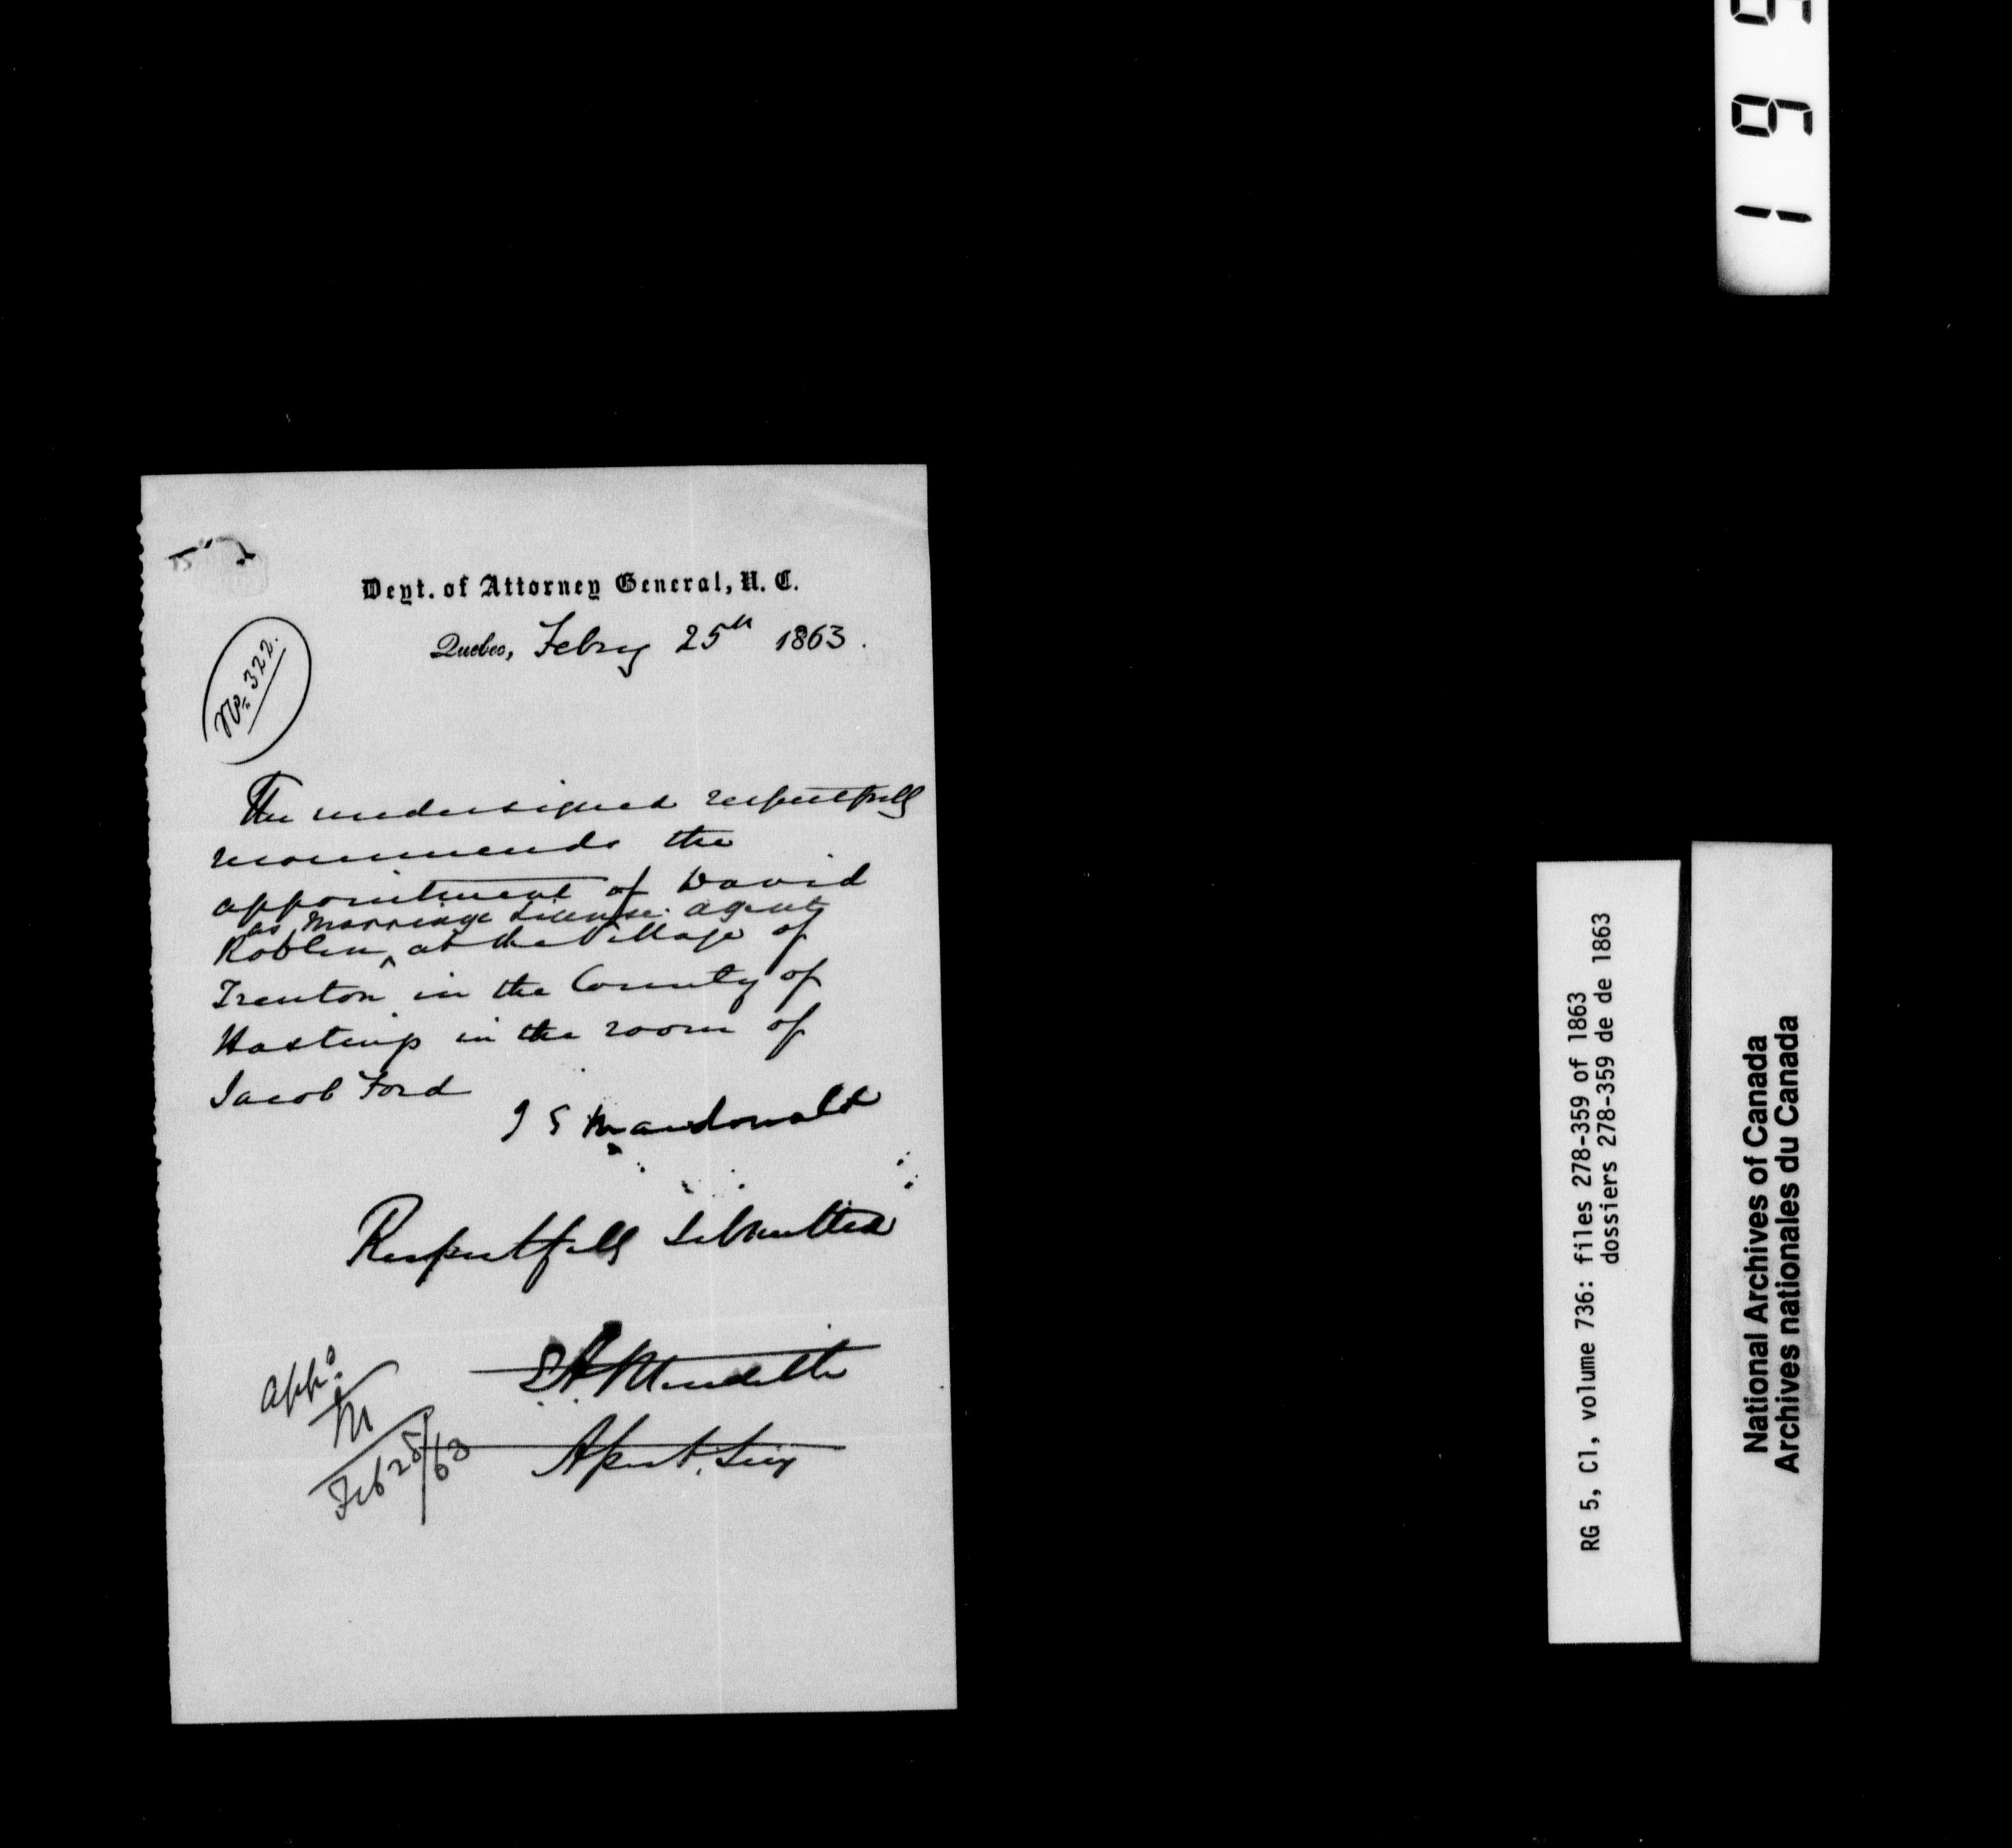 Dept. of Attorney General, U. C.
Quebec, Febry 25th 1863.
No. 322.
The undersigned respectfully
recommends the
appointment of David
as Marriage License agent
Roblin ^ at the Village of
Trenton in the County of
Hastings in the room of
Jacob Ford
J S Macdonald
Respectfully Submitted
E A Meredith
Asst. Secy
Appd.
M
Feb 25/63
RG 5, C1, volume 736: files 278-359 of 1863
dossiers 278-359 de de 1863
National Archives of Canada
Archives nationales du Canada